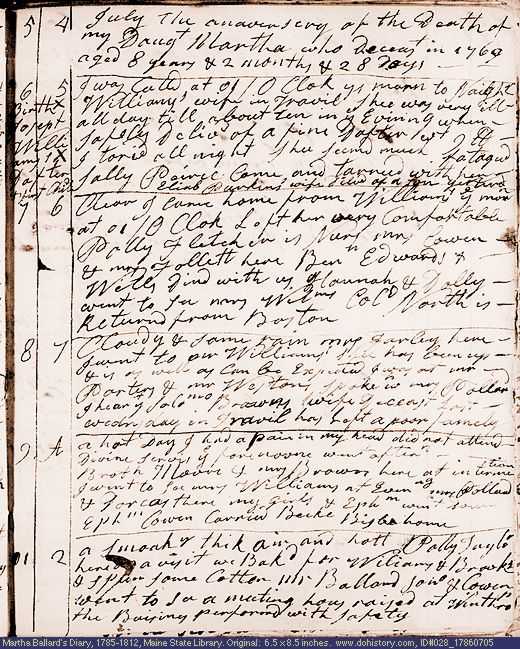 5 4 July the anaversery of the Death of
my Daugt Martha who Deceast in 1769
aged 8 years & 2 months & 28 Days
6 5 I was Calld at 01 / 0 Clok ys morn to
Birth X Williams wife in Travil Shee was very ill
Josept all day till about ten in ye Evining when
Willi Safely Delivd of a fine Dafter
ams 1X I tarid all night She seemd much fatagud
Dafter Sally Peirce Came and tarried with her
wife Dlivd of a Son yesterd
7 6 Clear I came home from Williams ys morn
at 01 / 0 Clok Left her very Comfortable
Polly Fletcher is Nurs mrs Cowen
& mrs Folleth here Ben Edwards &
Wells Dind with us Hannah & Dolly
went to see mrs Wilms Col North is
Returnd from Boston
8 7 Cloudy & Some rain mrs Farley here
I went to see Williams wife has been up
& is as well as Can be Expected I was at mr
Porters & mr Westons spoke to mrs Pollard
I hear Solo Browns wife Deceast Last
wednsday in Travil has Left a poor family
9 A a hot Day I had a Pain in my head did not attend
Divine Servis forenoone went aftern
Broth Moore & mrs Brown here at intermition
I went to see mrs Williams at Evng mrs Pollard
& Forcas there my Girls & Ephm went
Ephm Cowen Carried Becke Bisbe home
01 2 a Smoaky thik air and hott Polly Taylor
here a visit we Bakd for Wiliams & Brooks
& Spun Some Cotton mr Ballard Jona & Cowen
went to See a meeting hous raised at Winthrop
the Buisiness performd with Safety
Martha Ballard's Diary, 1785-1812, Maine State Library. Original: 6.5 x 8.5 inches. www.dohistory.com, ID#028_17860705